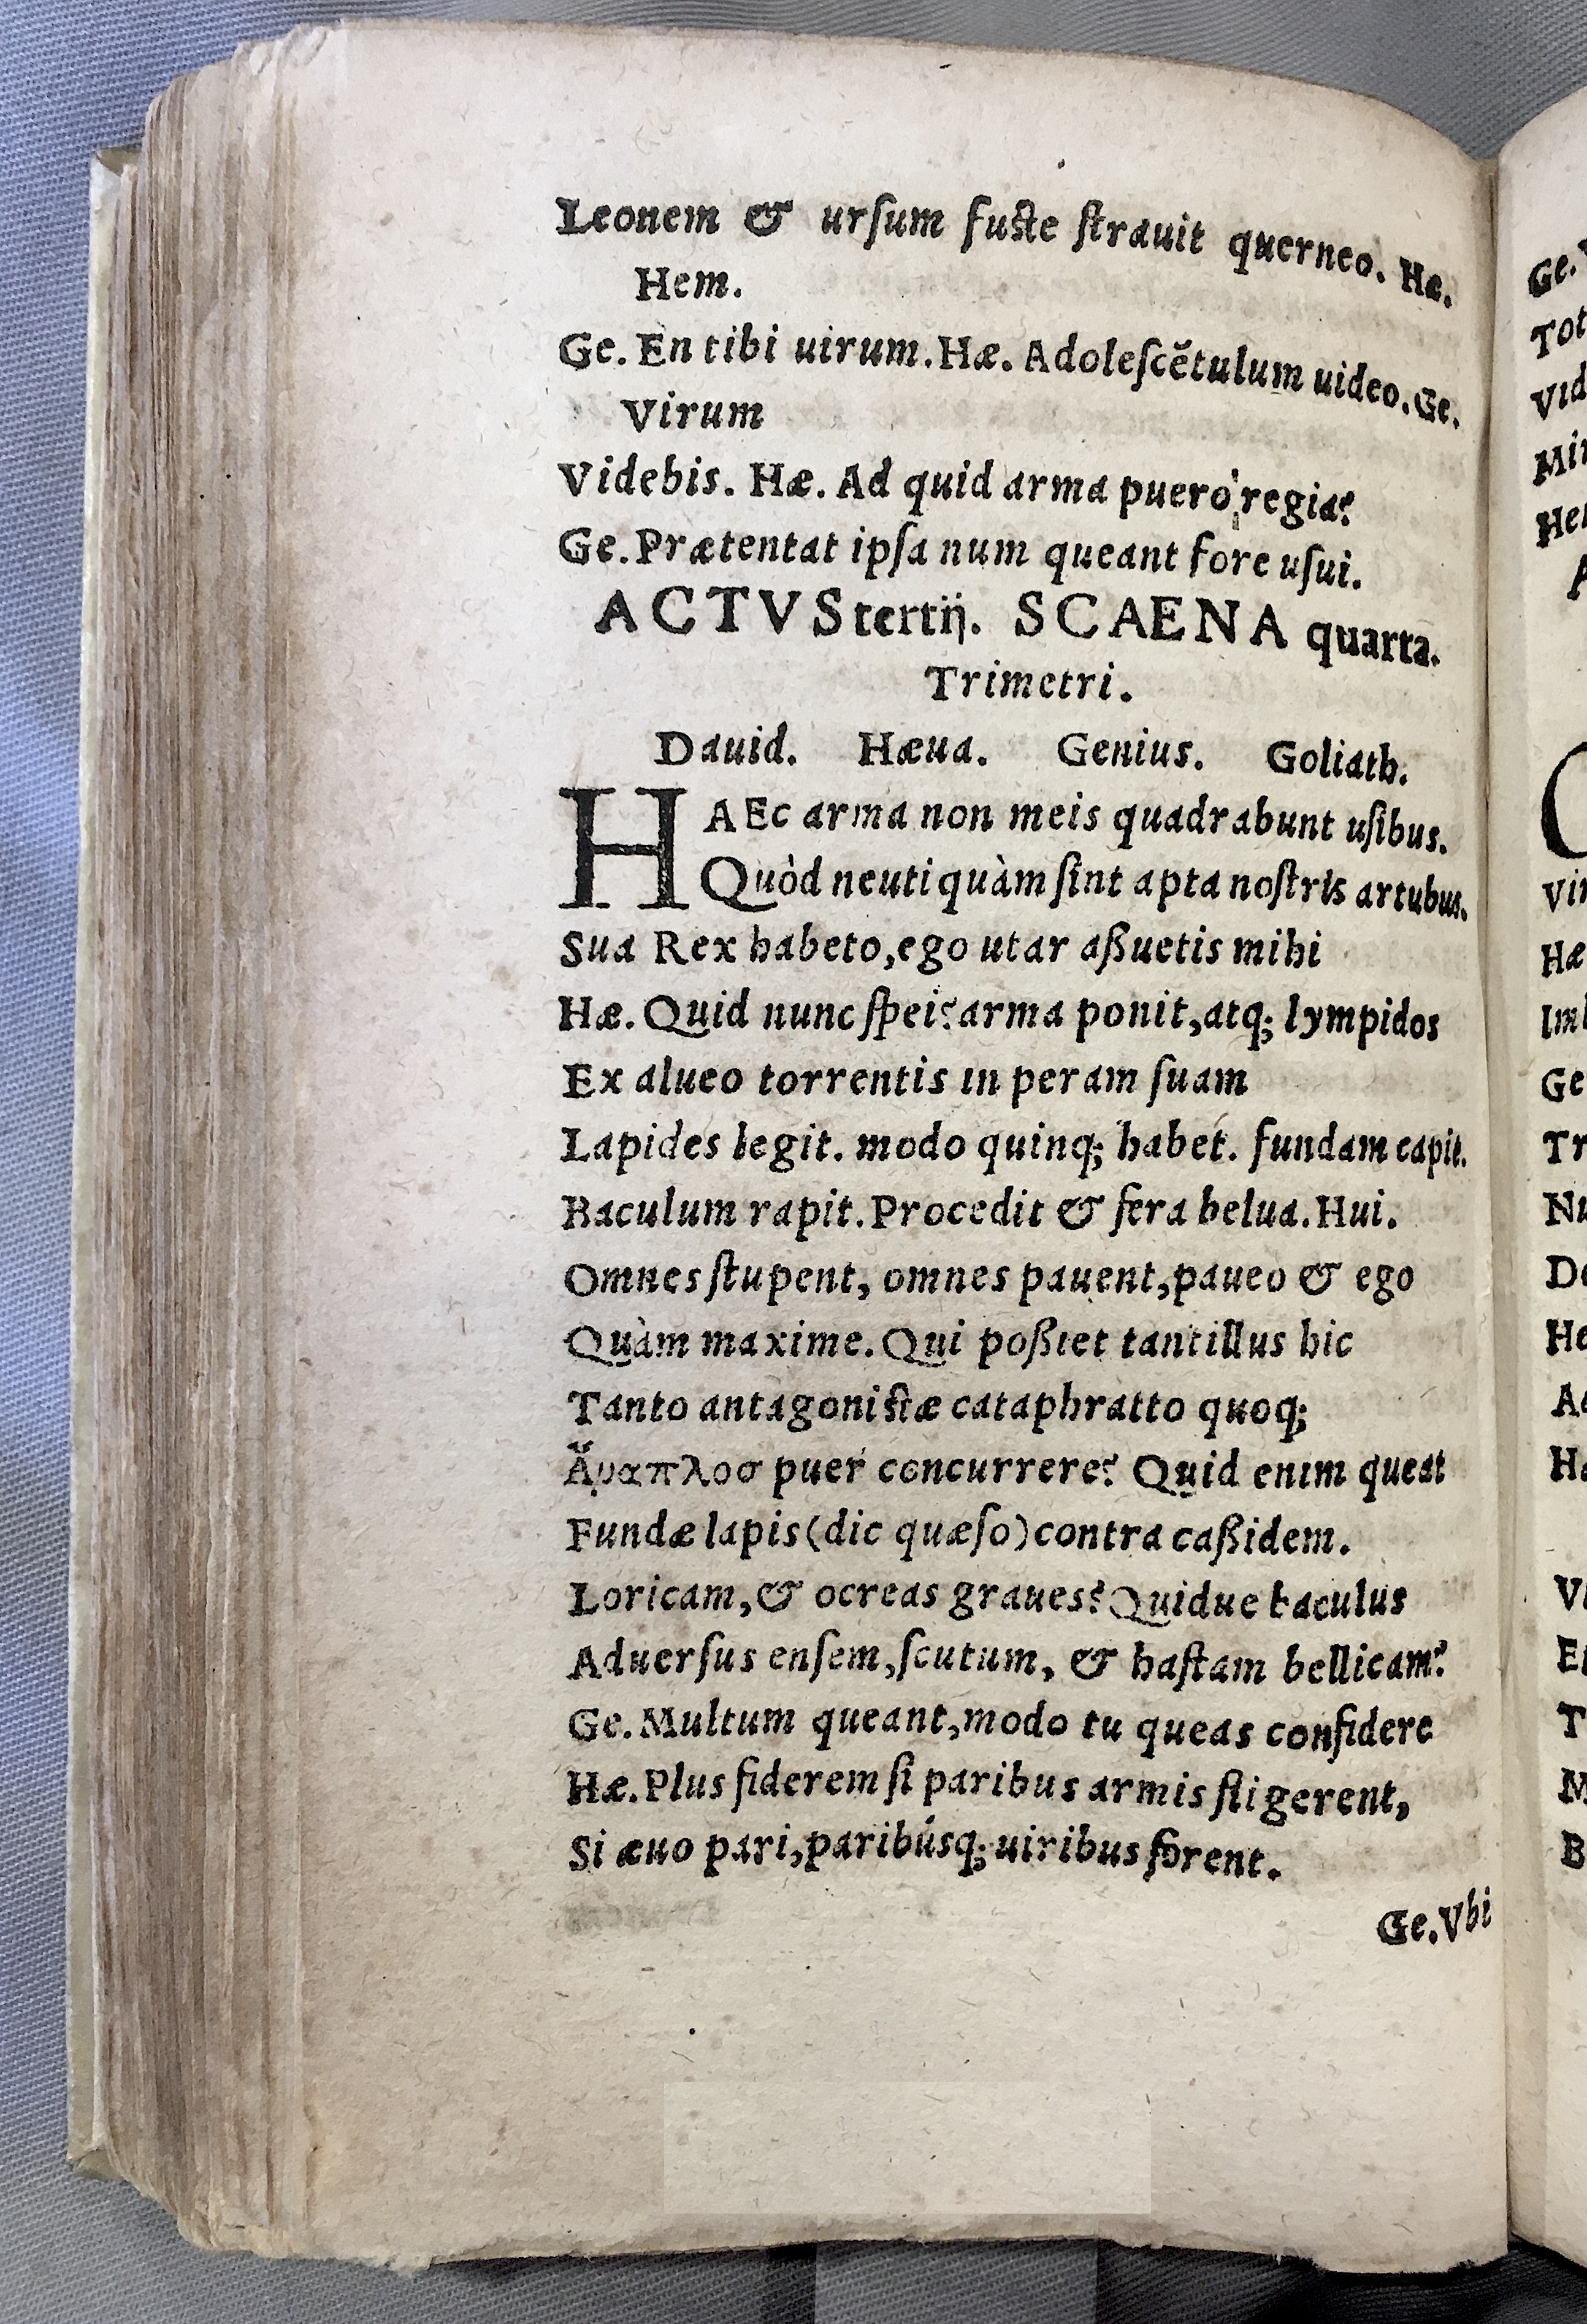 Leonem & urſum fuſte ſtrauit querneo. Hæ.
Hem.
Ge. En tibi uirum. Hæ. Adoleſcẽtulum uideo. Ge.
Virum
Videbis. Hæ. Ad quid arma puero regia?
Ge. Prætentat ipſa num queant fore uſui.
ACTVS tertij. SCAENA quarta.
Trimetri.
Dauid. Hæua. Genius. Goliath.
HAEc arma non meis quadrabunt uſibus.
Quòd neutiquàm ſint apta noſtris artubus.
Sua Rex habeto, ego utar aßuetis mihi
Hæ. Quid nunc ſpei? arma ponit, atq; lympidos
Ex alueo torrentis in peram ſuam
Lapides legit. modo quinq; habet. fundam capit.
Baculum rapit. Procedit & fera belua. Hui.
Omnes ſtupent, omnes pauent, paueo & ego
Quàm maxime. Qui poßiet tantillus hic
Tanto antagoniſtæ cataphratto quoq;
Ἄναπλοσ puer concurrere? Quid enim queat
Fundæ lapis (dic quæſo) contra caßidem.
Loricam, & ocreas graues? Quidue baculus
Aduerſus enſem, ſcutum, & haſtam bellicam?
Ge. Multum queant, modo tu queas confidere
Hæ. Plus fiderem ſi paribus armis fligerent,
Si æuo pari, paribúsq; uiribus forent.
Ge. Vbi
Ge.
Tot
Vid
Min
Hem
Vir
Hæ
Ge
Tr
Nu
De
He